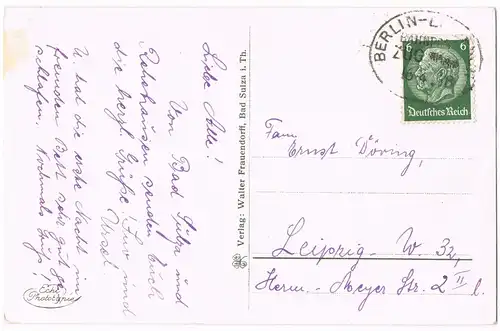 Liebe Alle!
Von Bad Sulza und
Rehehausen senden Euch
die herzl. Grüße! Luv und
Ursel
U. hat die erste Nacht im
fremden Bett sehr gut ge-
schlafen. Nochmals Gruß!
Echte
Photographie
Verlag: Walter Frauendorff, Bad Sulza i. Th.
BERLIN-
BAHNPOST
ZUG
6 6
Deutsches Reich
Fam.
Ernst Döring,
Leipzig - W. 32,
Herm.-Meyer Str. 2 II l.